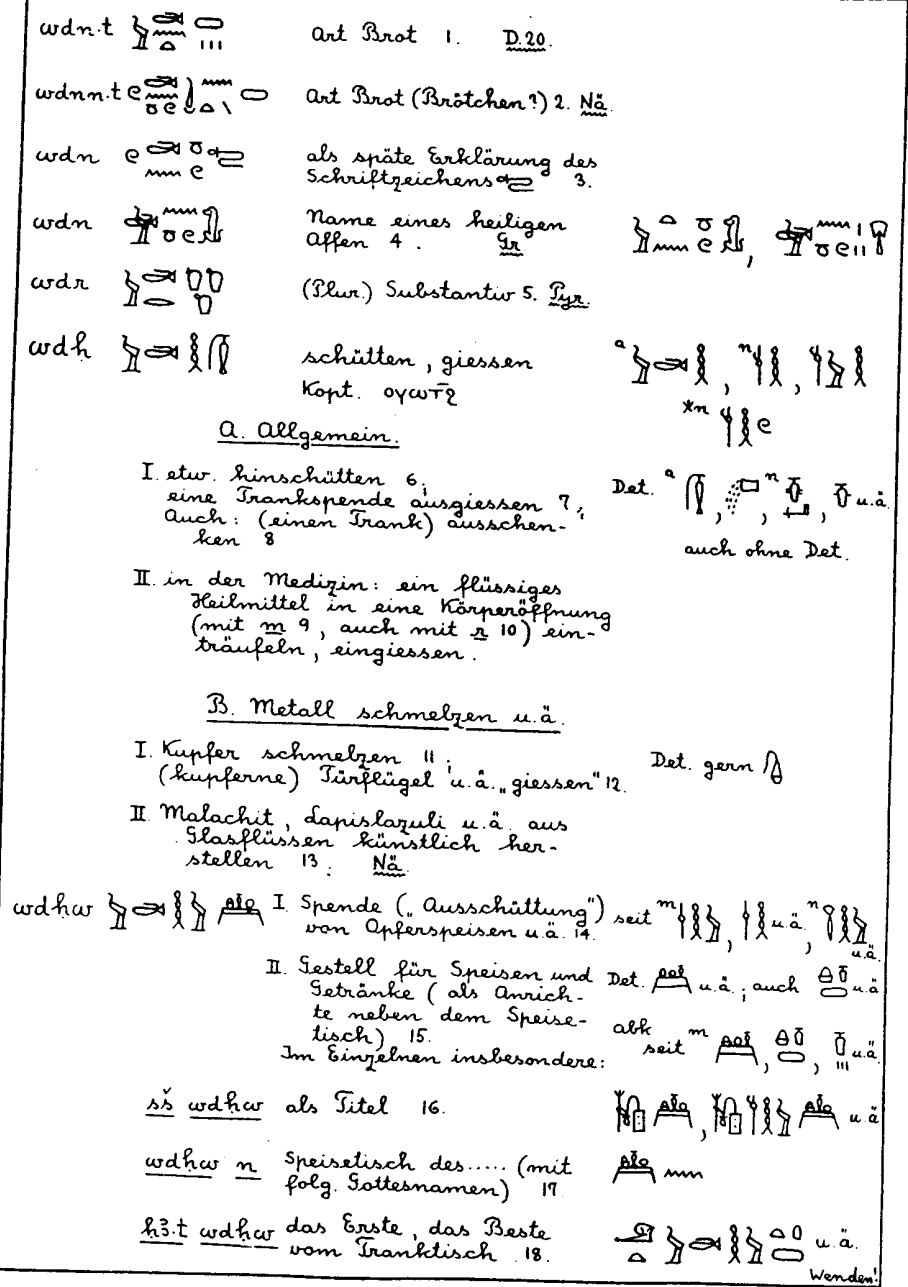 wdn·t Art Brot 1. D.20.
wdnn·t Art Brot (Brötchen?) 2. Nä.
wdn als späte Erklärung des
Schriftzeichens 3.
wdn Name eines heiligen
Affen 4. Gr
wdr (Plur.) Substantiv 5. Pyr.
wdḥ schütten, giessen
Kopt. ⲟⲩⲱⲧϩ
A. Allgemein.
I. etw. hinschütten 6;
eine Trankspende ausgiessen 7;
Auch: (einen Trank) ausschen-
ken 8
Det. a , , n , u.ä.
auch ohne Det.
II. in der Medizin: ein flüssiges
Heilmittel in eine Körperöffnung
(mit m 9, auch mit r 10) ein-
träufeln, eingiessen.
B. Metall schmelzen u.ä.
I. Kupfer schmelzen 11;
(kupferne) Türflügel u.ä. „giessen" 12.
Det. gern
II. Malachit, Lapislazuli u.ä. aus
Glasflüssen künstlich her-
stellen 13. Nä.
wdḥw I. Spende („Ausschüttung") seit m , u.ä., n u.ä.
von Opferspeisen u.ä. 14.
II. Gestell für Speisen und Det. u.ä.; auch u.ä
Getränke (als Anrich-
te neben dem Speise-
tisch) 15. abk seit m , , u.ä.
Im Einzelnen insbesondere:
sš wdḥw als Titel 16. , u.ä
wdḥw n Speisetisch des..... (mit
folg. Gottesnamen) 17
ḥꜣ.t wdḥw das Erste, das Beste
vom Tranktisch 18. u.ä.
Wenden!